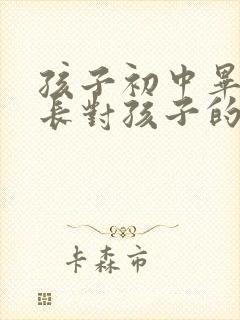 孩子初中畢
長對孩子的
卡森市